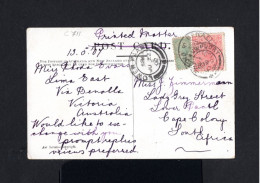 Printed Matter
POST CARD.
13.6.07
Miss
Lima East
Via Benalla
Victoria
Australia
Would like to ex-
change with you
prompt replies
views preferred
Miss Zimmermann
Lady Grey Street
Cape Colony
South Africa